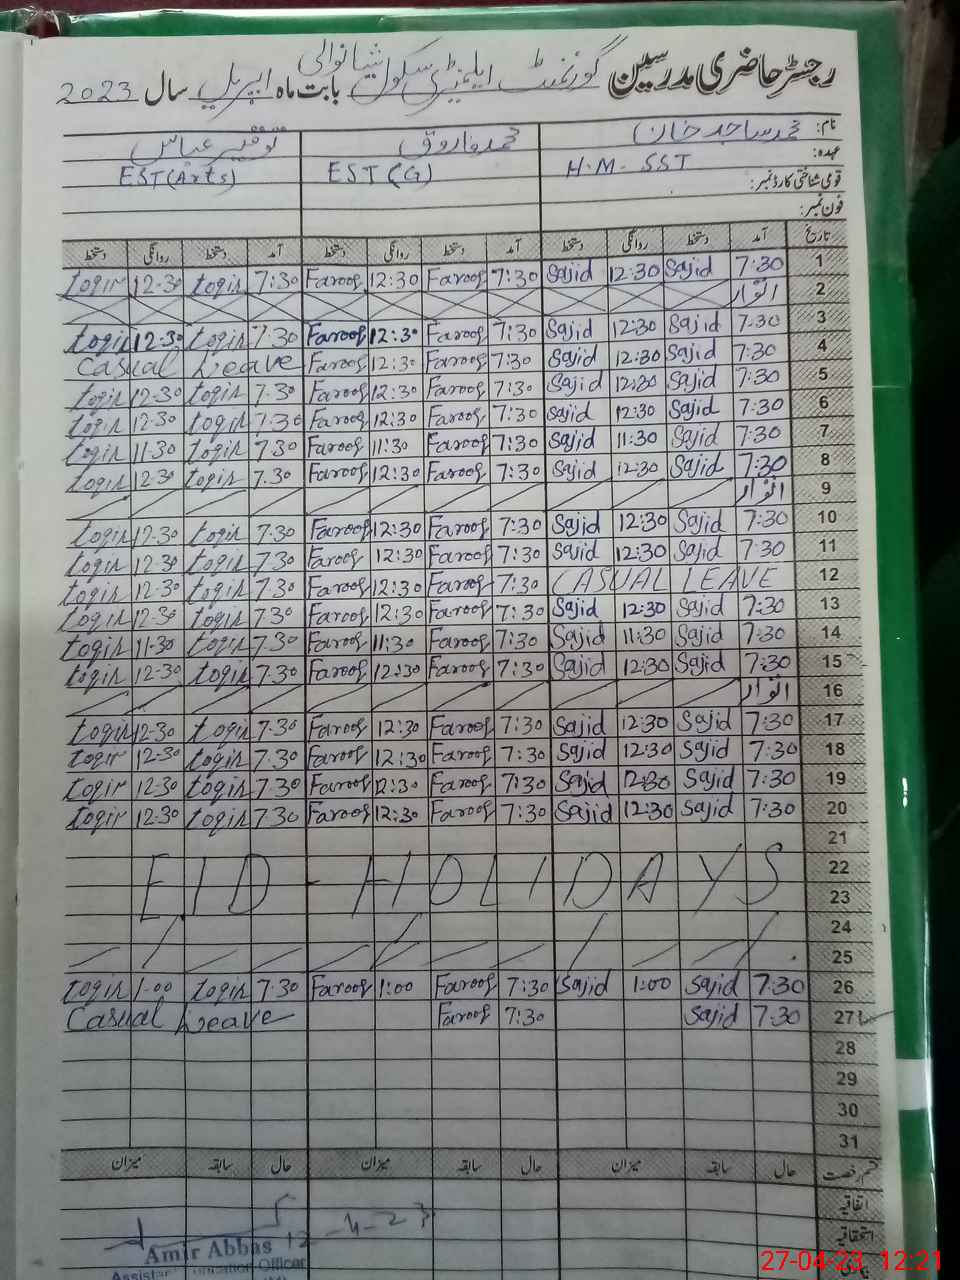 رجسٹر حاضری مدرسین گورنمنٹ ایلیمنٹری سکول شیانوالی بابت ماہ اپریل سال 2023
نام: محمد ساجد خان محمد فاروق توقیر عباس
عہدہ: H.M. SST EST (G) EST (Arts)
قومی شناختی کارڈ نمبر:
فون نمبر:
تاریخ آمد دستخط روانگی دستخط آمد دستخط روانگی دستخط آمد دستخط روانگی دستخط
1 7:30 Sajid 12:30 Sajid 7:30 Farooq 12:30 Farooq 7:30 Toqir 12-30 Toqir
2 اتوار
3 7:30 Sajid 12:30 Sajid 7:30 Farooq 12:30 Farooq 7:30 Toqir 12-30 Toqir
4 7:30 Sajid 12:30 Sajid 7:30 Farooq 12:30 Farooq Casual Leave
5 7:30 Sajid 12:30 Sajid 7:30 Farooq 12:30 Farooq 7.30 Toqir 12-30 Toqir
6 7:30 Sajid 12:30 Sajid 7:30 Farooq 12:30 Farooq 7.30 Toqir 12-30 Toqir
7 7:30 Sajid 11:30 Sajid 7:30 Farooq 11:30 Farooq 7.30 Toqir 11-30 Toqir
8 7:30 Sajid 12:30 Sajid 7:30 Farooq 12:30 Farooq 7.30 Toqir 12-30 Toqir
9 اتوار
10 7:30 Sajid 12:30 Sajid 7:30 Farooq 12:30 Farooq 7.30 Toqir 12-30 Toqir
11 7:30 Sajid 12:30 Sajid 7:30 Farooq 12:30 Farooq 7.30 Toqir 12-30 Toqir
12 CASUAL LEAVE 7:30 Farooq 12:30 Farooq 7.30 Toqir 12-30 Toqir
13 7:30 Sajid 12:30 Sajid 7:30 Farooq 12:30 Farooq 7.30 Toqir 12-30 Toqir
14 7:30 Sajid 11:30 Sajid 7:30 Farooq 11:30 Farooq 7.30 Toqir 11-30 Toqir
15 7:30 Sajid 12:30 Sajid 7:30 Farooq 12:30 Farooq 7.30 Toqir 12-30 Toqir
16 اتوار
17 7:30 Sajid 12:30 Sajid 7:30 Farooq 12:30 Farooq 7.30 Toqir 12-30 Toqir
18 7:30 Sajid 12:30 Sajid 7:30 Farooq 12:30 Farooq 7.30 Toqir 12-30 Toqir
19 7:30 Sajid 12:30 Sajid 7:30 Farooq 12:30 Farooq 7.30 Toqir 12-30 Toqir
20 7:30 Sajid 12:30 Sajid 7:30 Farooq 12:30 Farooq 7.30 Toqir 12-30 Toqir
21
22
EID - HOLIDAYS
23
24
25
26 7:30 Sajid 1:00 Sajid 7:30 Farooq 1:00 Farooq 7.30 Toqir 1-00 Toqir
27 7:30 Sajid 7:30 Farooq Casual Leave
28
29
30
31
قسم رخصت حال سابقہ میزان حال سابقہ میزان حال سابقہ میزان
اتفاقیہ
استحقاقیہ
12-4-23
Amir Abbas
Assistant Education Officer
27-04-23 12:21